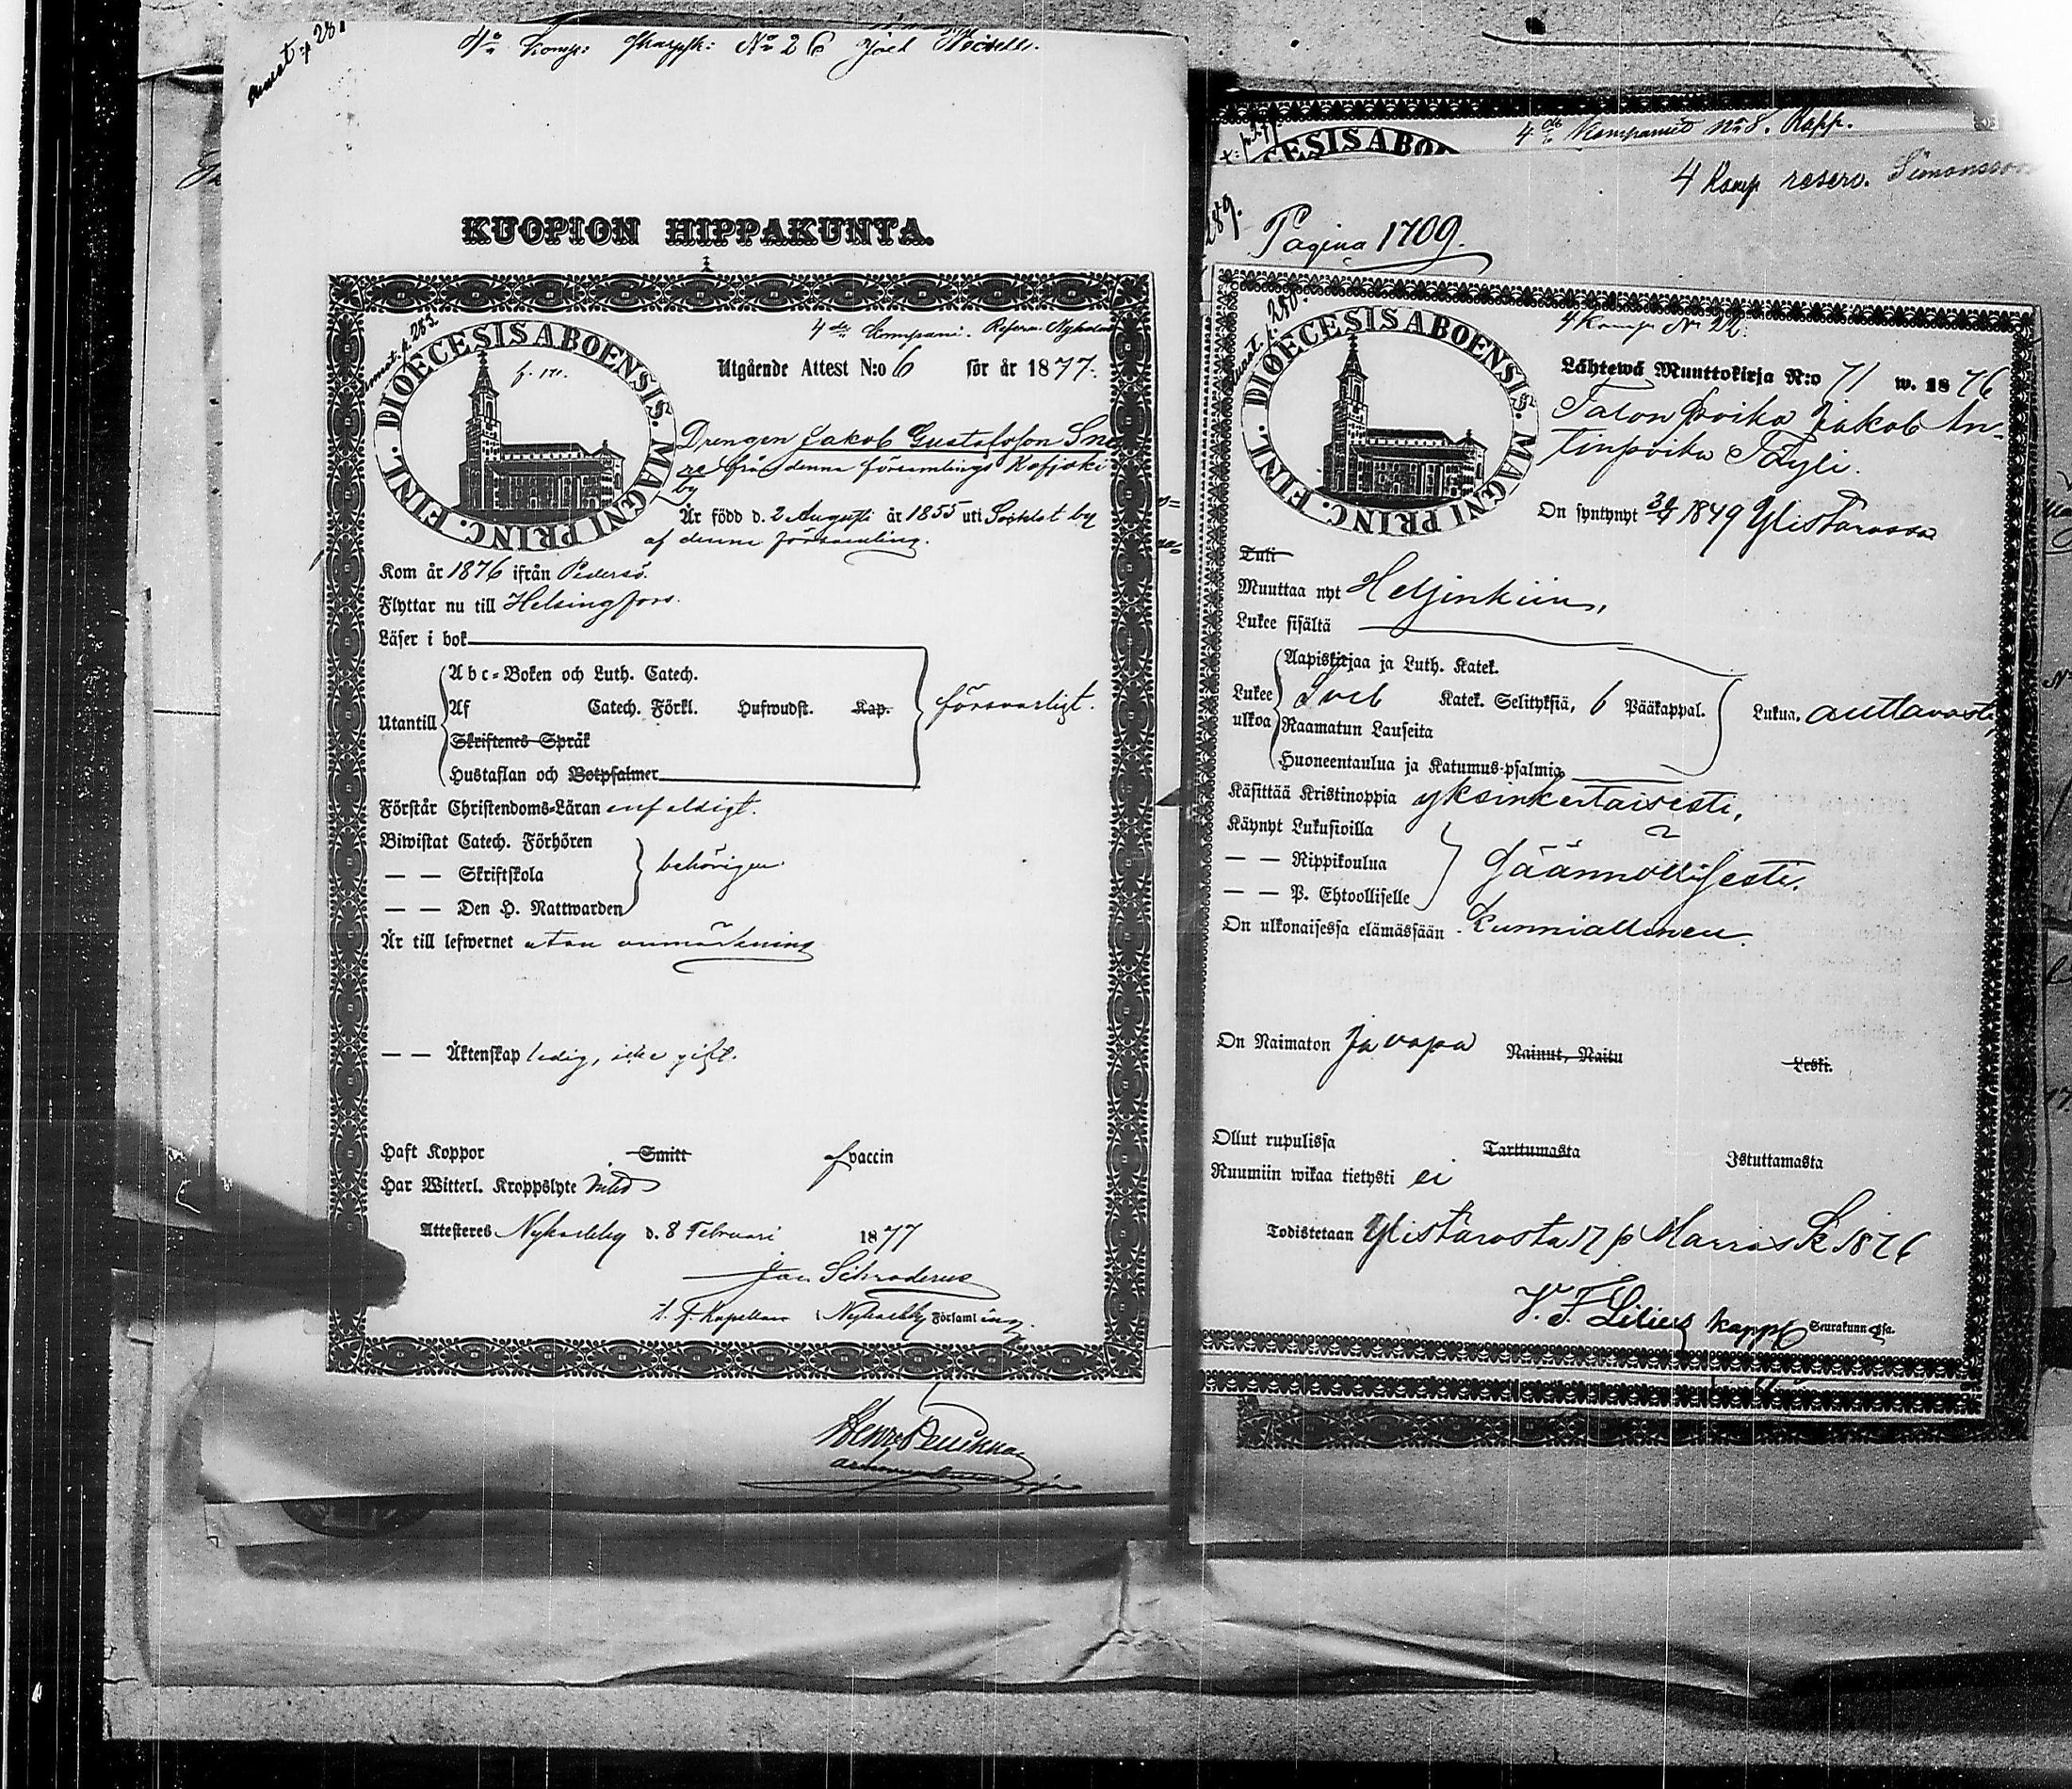 Komp: Skarpsk: No 26 Joel
KUOPION HIPPAKUNTA.
4de Kompani. Reserv. Nyholm
DIOECESIS ABOENSIS. MAGNI PRINC. FINL.
Utgående Attest N:o 6 för år 1877.
Drengen Jakob Gustafsson Sne-
re från denna församlings Kofjoki
by
Är född d. 2 Augusti år 1855 uti Soklot by
af denna församling.
Kom år 1876 ifrån Pedersö.
Flyttar nu till Helsingfors.
Läser i bok
Abc-Boken och Luth. Catech.
Utantill Af Catech. Förkl. Hufwudst. Kap. försvarligt.
Skriftenes Språk
Hustaflan och Botpsalmer
Förstår Christendoms-Läran enfaldigt.
Biwistat Catech. Förhören
— — Skriftskola behörigen
— — Den H. Nattwarden
Är till lefwernet utan anmärkning
— — Äktenskap ledig, icke gift.
Haft Koppor Smitt af vaccin
Har Witterl. Kroppslyte intet
Attesteras Nykarleby d. 8 Februari 1877
Jan Schroderus
t. f. Kapellan i Nykarleby Församling.
4de Kompaniet No 8. Rapp.
CESIS ABO
4 Komp reserv. Simonsson
289.
Pagina 1709.
4 Komp No 22.
DIOECESIS ABOENSIS. MAGNI PRINC. FINL.
Lähtewä Muuttokirja N:o 71 w. 1876
Talon poika Jakob An-
tinpoika Täyli.
On syntynyt 1849 Ylistarossa
Tuli
Muuttaa nyt Helsinkiin,
Lukee sisältä
Aapiskirjaa ja Luth. Katek.
Lukee ulkoa Katek. Selityksiä, 6 Pääkappal. Lukua. auttavasti,
Raamatun Lauseita
Huoneentaulua ja Katumus-psalmia
Käsittää Kristinoppia yksinkertaisesti,
Käynyt Lukusioilla
— — Rippikoulua säännöllisesti.
— — P. Ehtoolliselle
On ulkonaisessa elämässään kunniallinen.
On Naimaton ja vapa Nainut, Naitu Leski.
Ollut rupulissa Tarttumasta Istuttamasta
Ruumiin wikaa tietysti ei
Todistetaan Ylistarosta 17 p Marrask 1876
V. F. Lilius kappl Seurakunnassa.